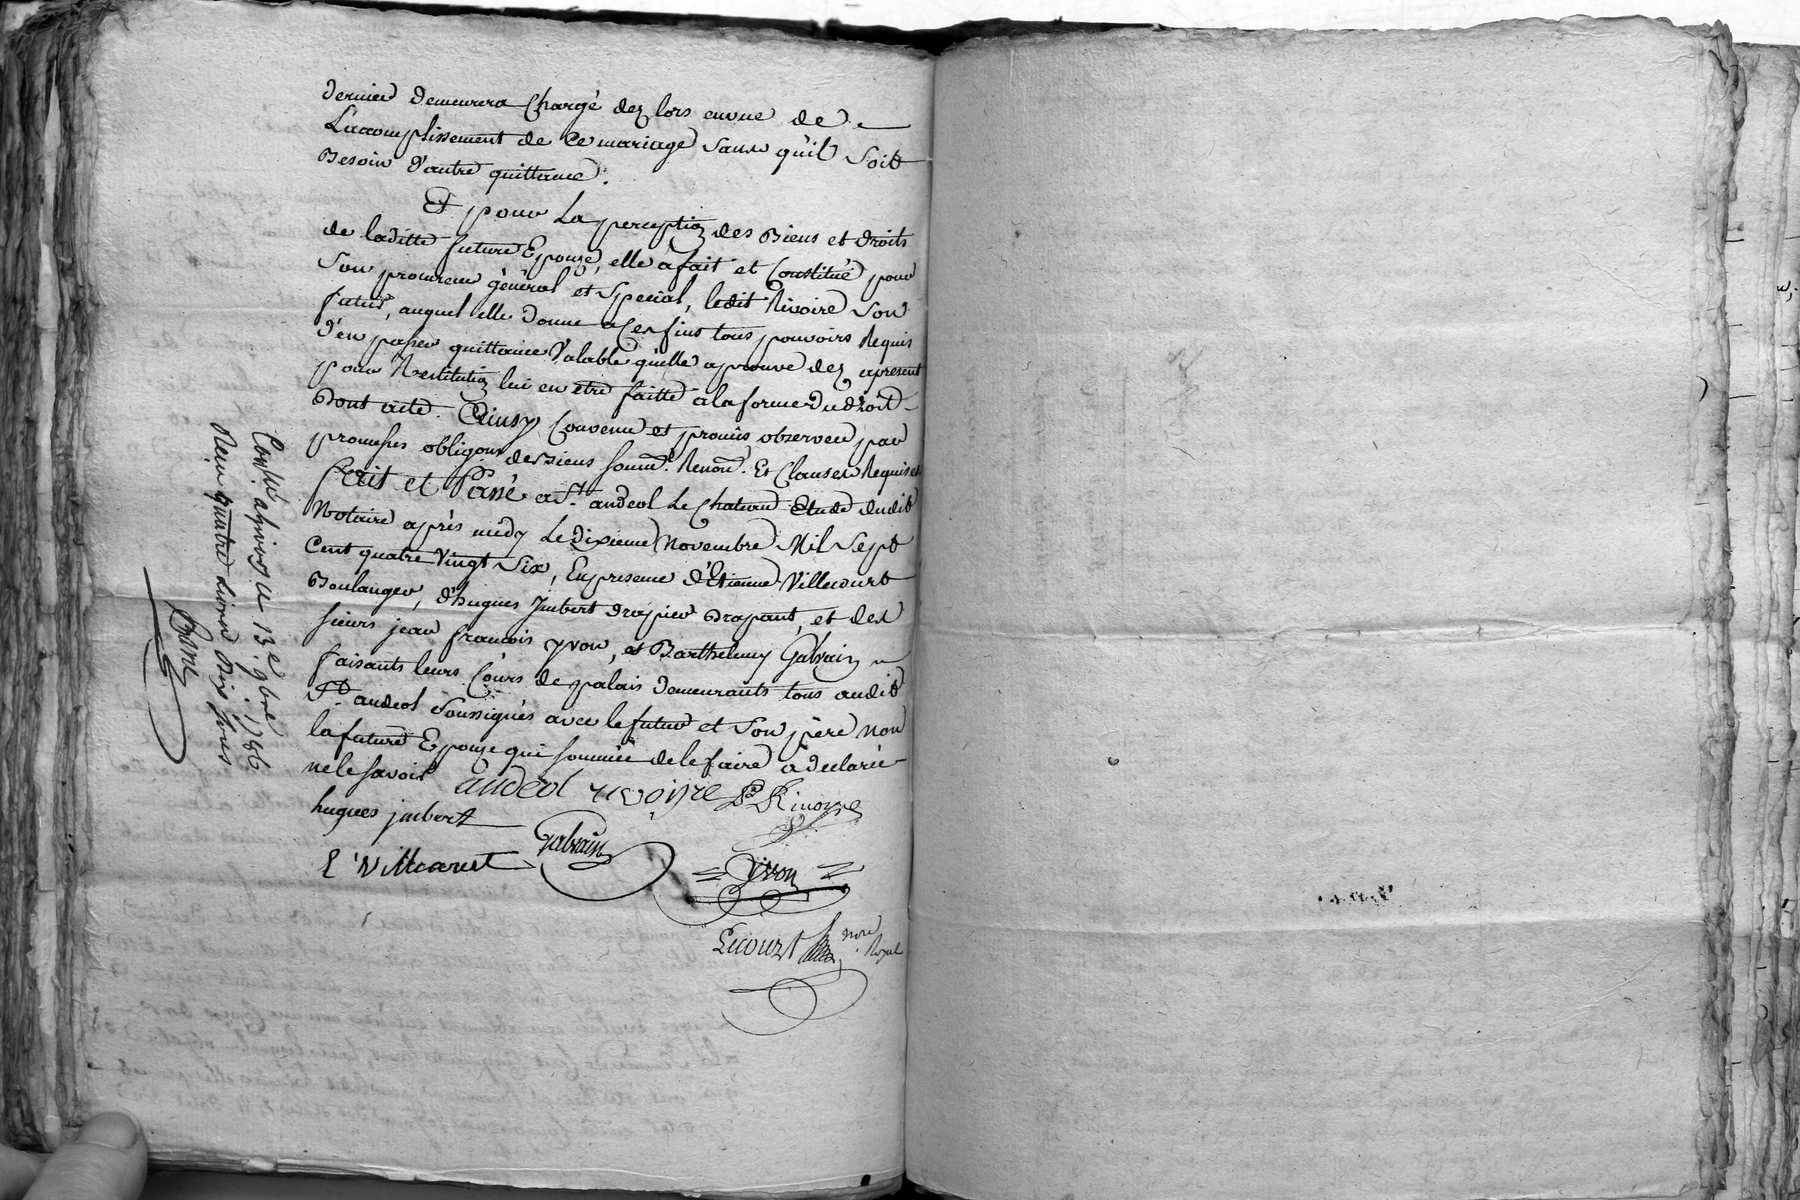 dernier demeurera Chargé dez lors envue de
L'accomplissement de Ce mariage Sans qu'il Soit
Besoin d'autre quittance.
Et pour La perception des Biens et droits
de laditte future Epouze, elle a fait et Constitué pour
Son procureur général et Special, ledit Rivoire Son
futur, auquel elle donne a Ces fins tous pouvoirs Requis
d'en passer quittance Valable qu'elle aprouve dez apresent
pour Restitution lui en etre faitte a la forme du droit
Dont acte. Ainsy Convenu et promis observer par
promesses obligons des biens soum. Renon. Et Clauses Requises
Fait et Passé a St. andeol Le Chateau Etude dudit
Notaire après midy Le Dixieme Novembre Mil Sept
Cent quatre Vingt Six, En presence d'Etienne Villecourt
Boulanger, d'hugues Jmbert drapier drapant, et des
sieurs jean francois yvon, et Barthelemy Gabrain
faisants leurs Cours de palais demeurants tous audit
St. andeol Soussignés avec le futur et Son père non
la future Epouze qui sommée de le faire a declaré
ne le savoir
andeol rivoire P Rivoyre
hugues jmbert
Gabrain
E Villecourt
yvon
Lecourt nore Royal
Conllé a givors Le 13.e 9bre 1786
Reçu quatre livres Dix sous